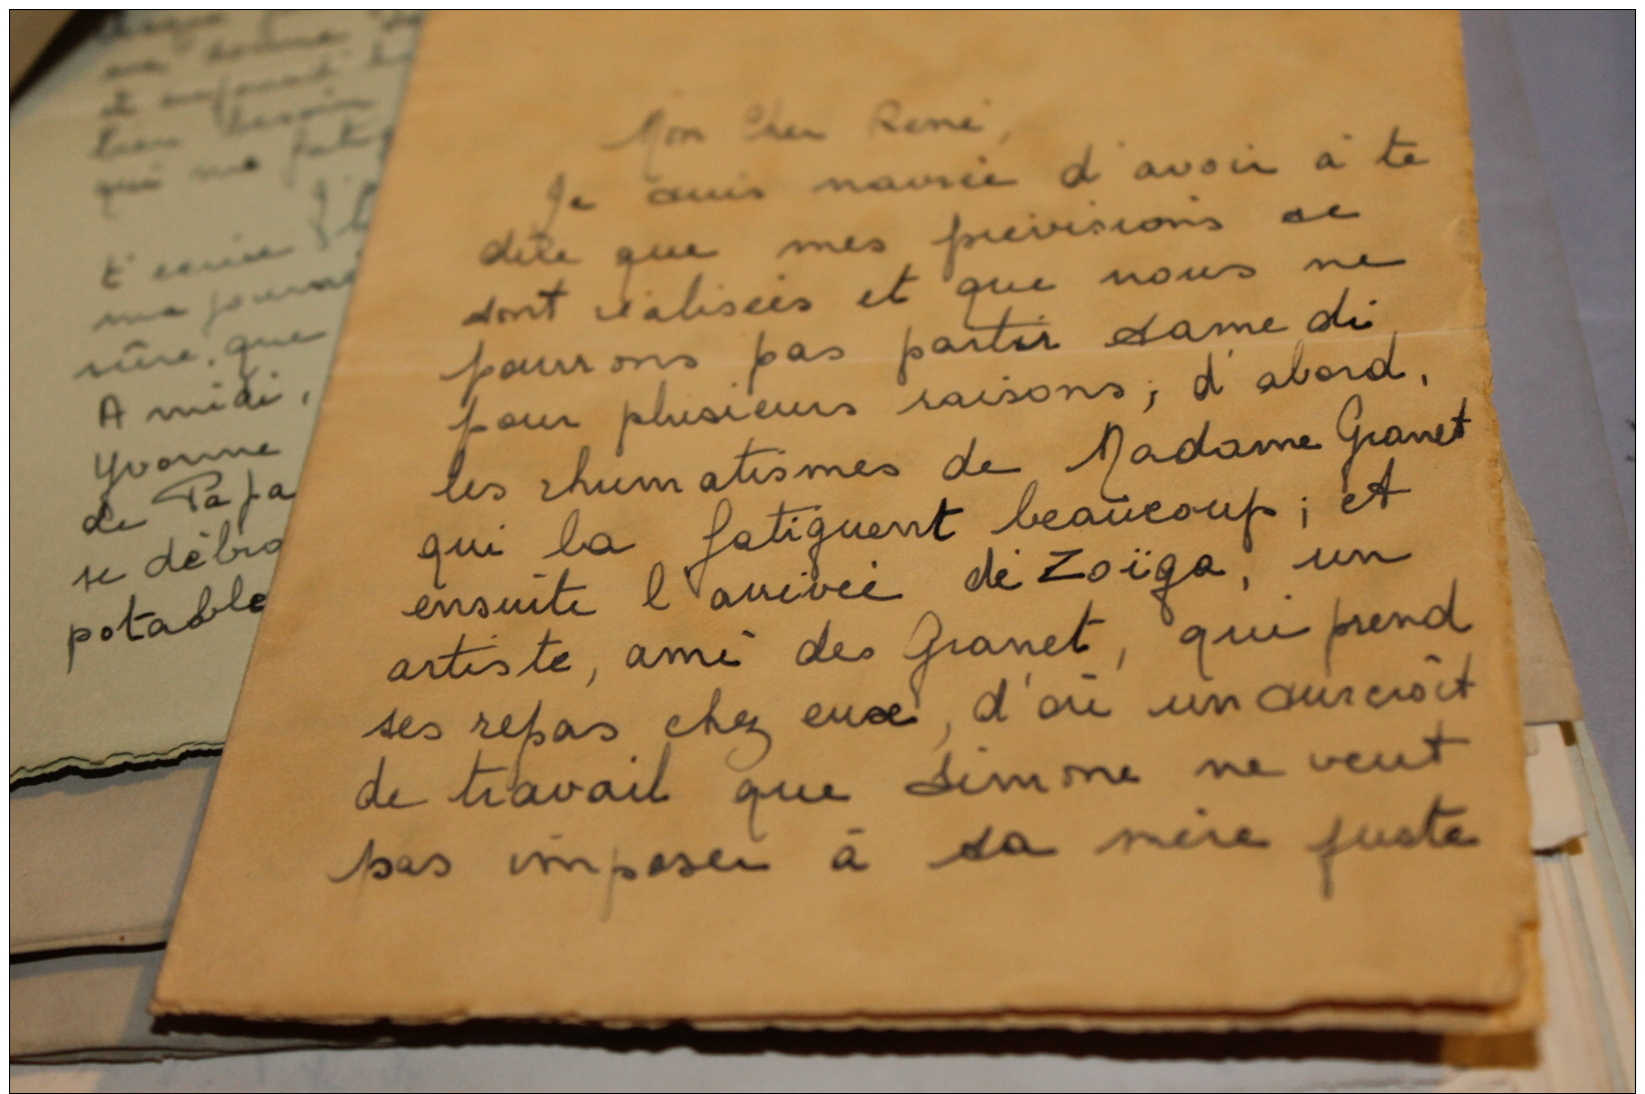 qui me
t'écrire
ma journé
sûre, que
A midi,
Yvonne
de Papa
se débro
potable
Mon Cher René,
Je suis navrée d'avoir à te
dire que mes prévisions se
sont réalisées et que nous ne
pourrons pas partir samedi
pour plusieurs raisons; d'abord,
les rhumatismes de Madame Granet
qui la fatiguent beaucoup; et
ensuite l'arrivée de Zoïga, un
artiste, ami des Granet, qui prend
ses repas chez eux, d'où un surcroît
de travail que Simone ne veut
pas imposer à sa mère juste